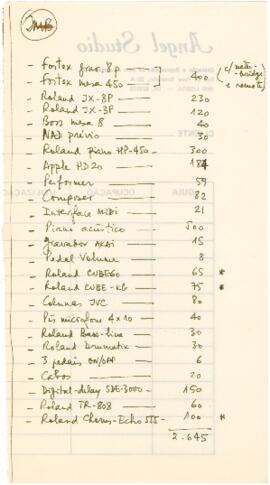 JMB
Angel Studio
- Fostex grav. 8p
- Fostex mesa 450 400 (c/ meter-bridge e remote)
- Roland JX-8P 230
- Roland JX-3P 120
- Boss mesa 8 40
- NAD prévio 30
- Roland piano HP-450 300
- Apple HD20 184
- Performer 59
- Composer 82
- Interface MIDI 21
- Piano acústico 500
- gravador AKAI 15
- Pedal Volume 8
- Roland CUBE60 65 *
- Roland CUBE-KB 75 *
- Colunas JVC 80
- Pés microfone 4x10 40
- Roland Base-line 30
- Roland Drumatic 30
- 3 pedais ON/OFF 6
- Cabos 20
- Digital-delay SDE-3000 150
- Roland TR-808 60
- Roland Chorus-Echo 555 100 *
2.645